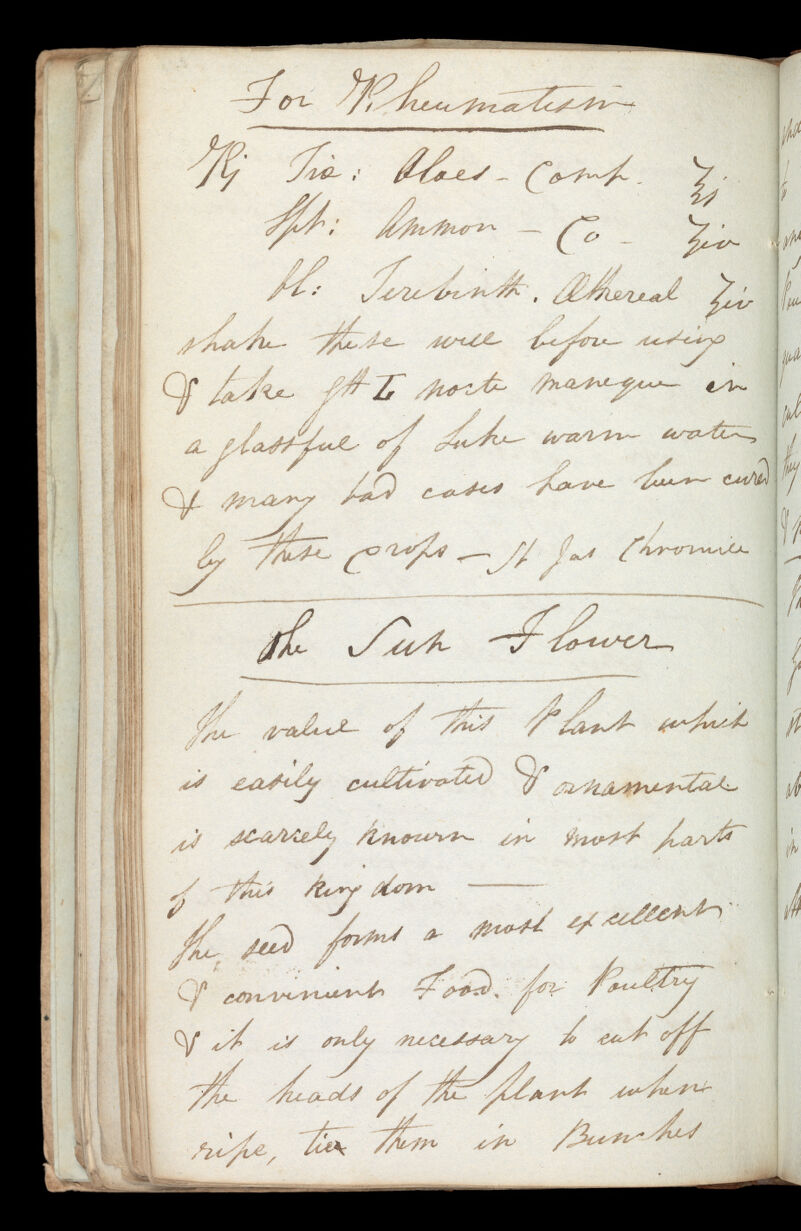 For Rheumatism
Rj Tinc: Aloes - Comp. ʒij
Spt: Ammon - Co - ʒiv
Ol: Terebinth. Æthereal ʒiv
shake these well before using
& take gtt L nocte maneque in
a glassful of Luke warm water
& many bad cases have been cured
by these Drops - St Jas Chronicle
The Sun Flower
The value of this Plant which
is easily cultivated & ornamental
is scarcely known in most parts
of this kingdom —
The seed forms a most excellent
& convenient Food. for Poultry
& it is only necessary to cut off
the heads of the plant when
ripe, tie them in Bunches